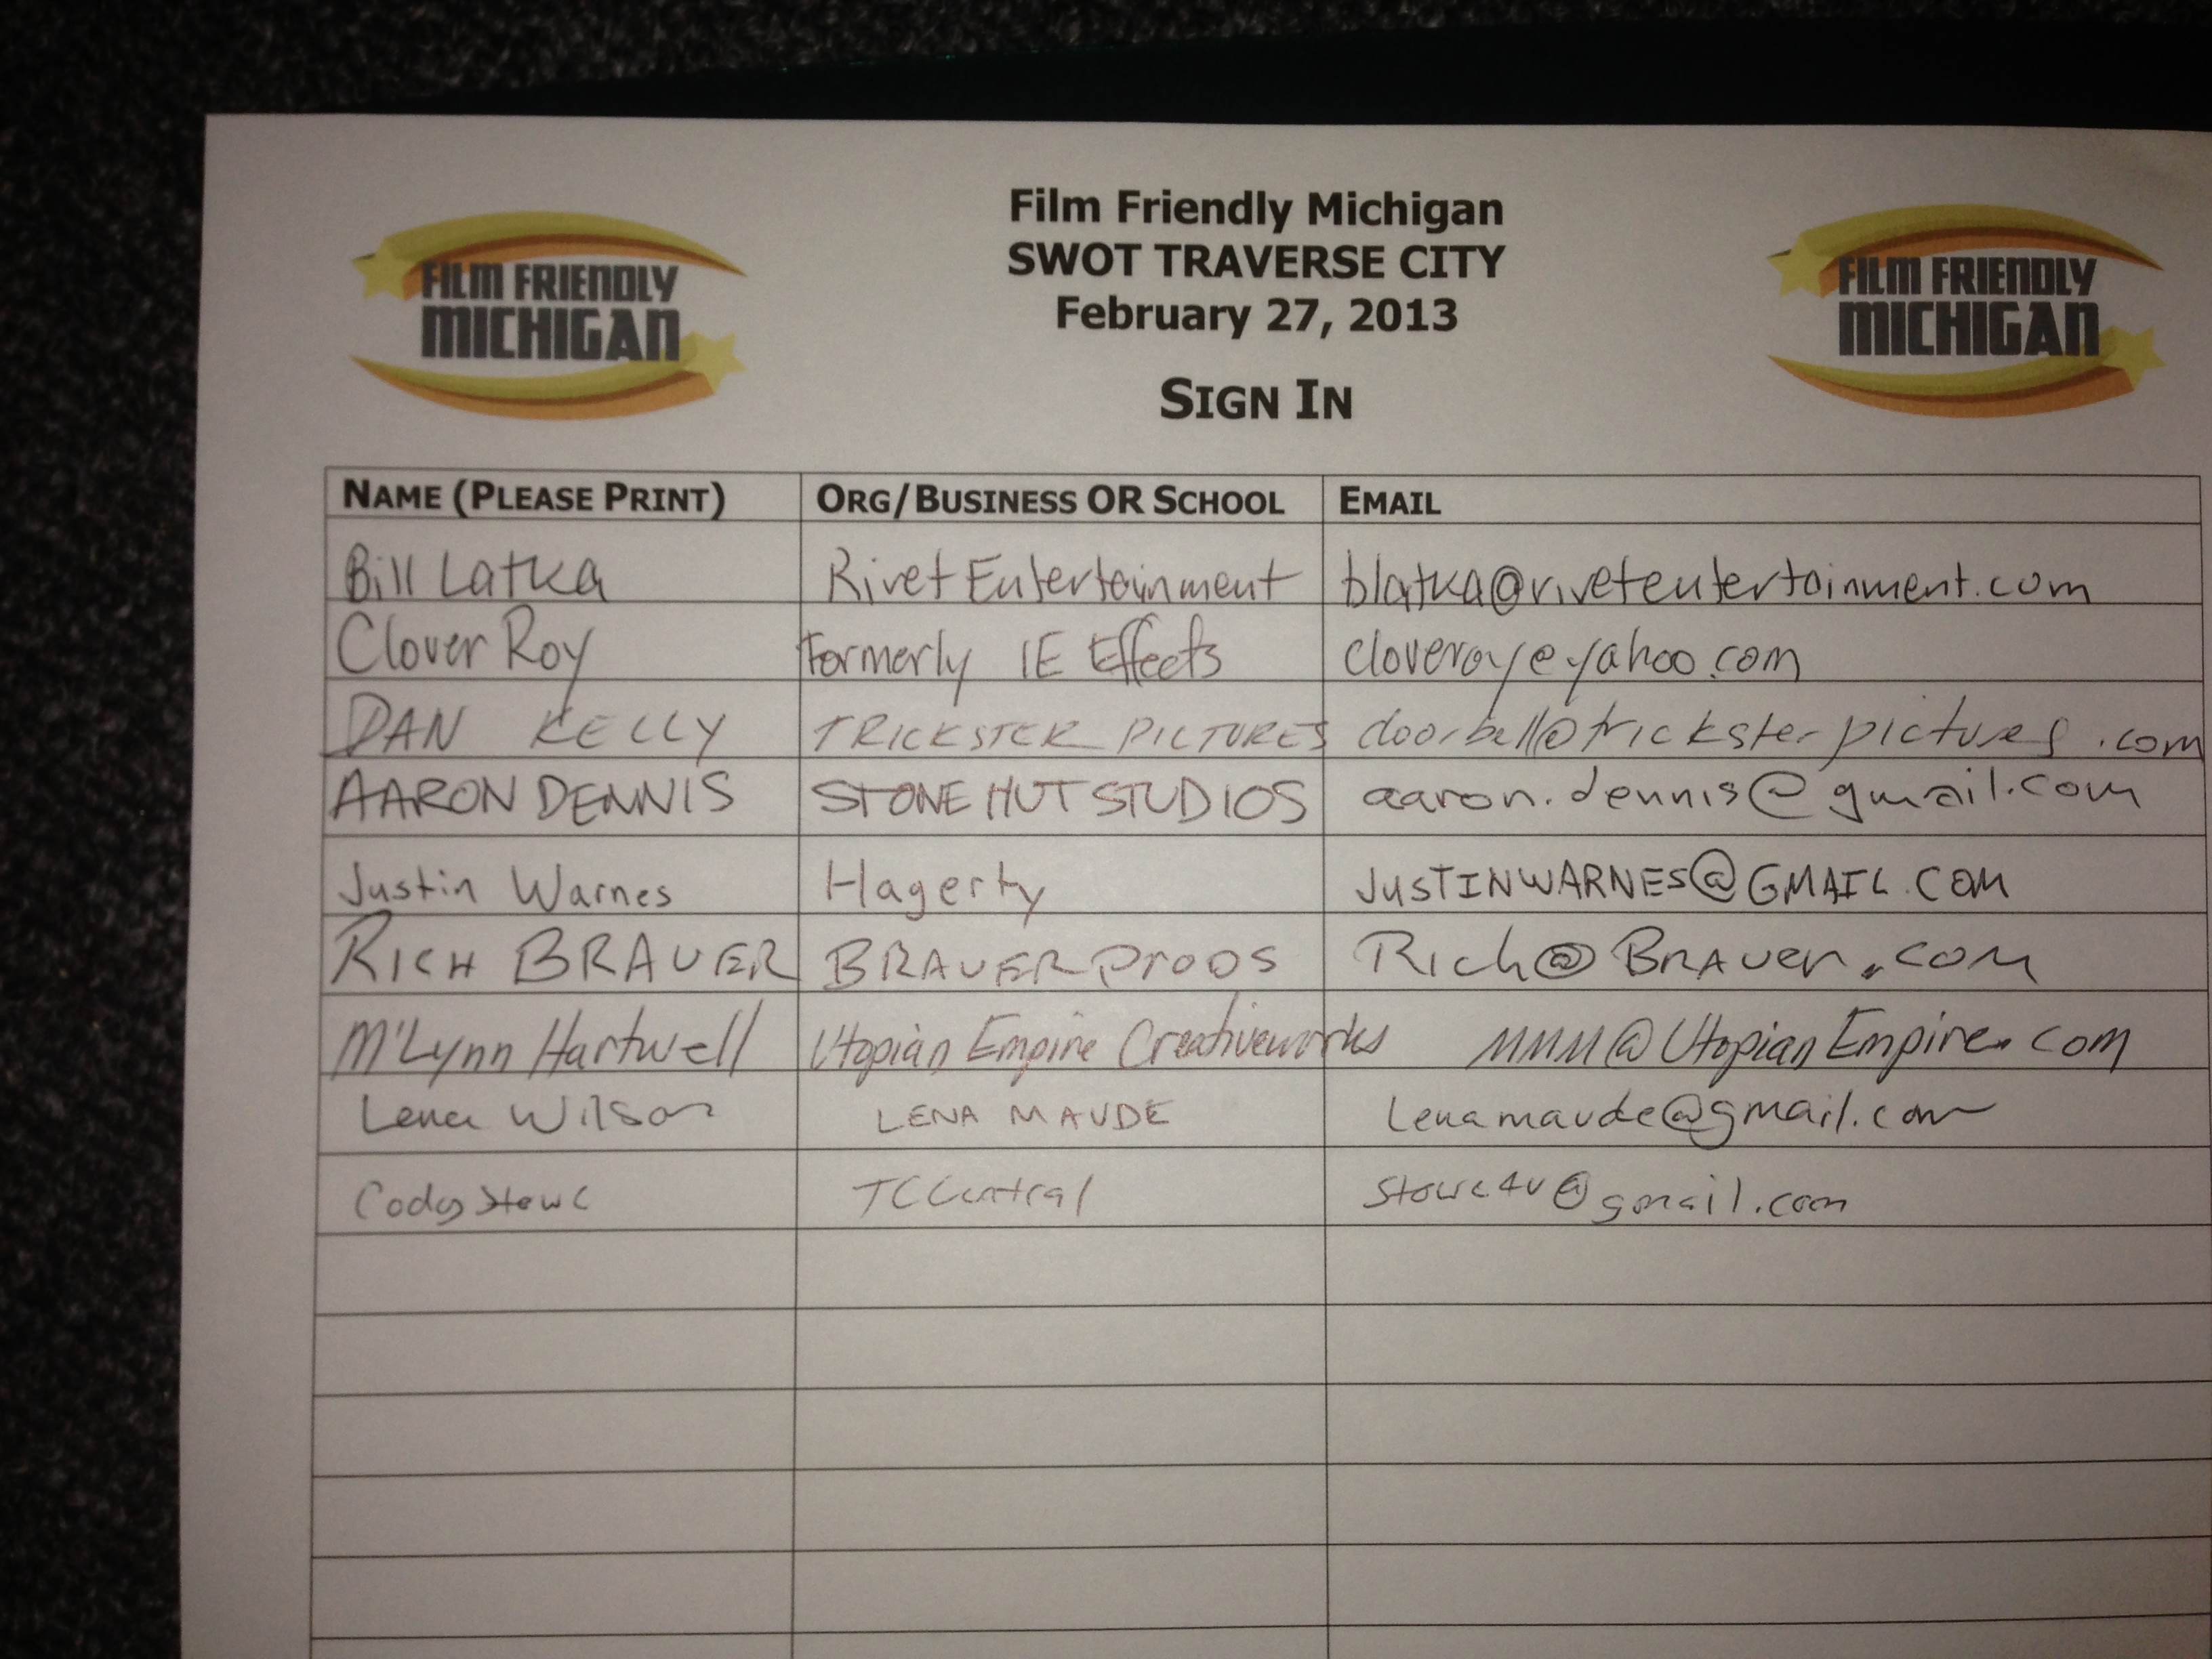 Film Friendly Michigan
SWOT TRAVERSE CITY
February 27, 2013
FILM FRIENDLY
MICHIGAN
FILM FRIENDLY
MICHIGAN
SIGN IN
NAME (PLEASE PRINT) ORG/BUSINESS OR SCHOOL EMAIL
Bill Latka Rivet Entertainment blatka@rivetentertainment.com
Clover Roy Formerly IE Effects cloveroy@yahoo.com
DAN KELLY TRICKSTER PICTURES doorbell@tricksterpictures.com
AARON DENNIS STONE HUT STUDIOS aaron.dennis@gmail.com
Justin Warnes Hagerty JUSTINWARNES@GMAIL.COM
RICH BRAUER BRAUER PRODS Rich@BRAUER.com
M'Lynn Hartwell Utopian Empire Creativeworks MMM@UtopianEmpire.com
Lena Wilson LENA MAUDE Lenamaude@gmail.com
Cody Stowe TC Central Stowe4u@gmail.com